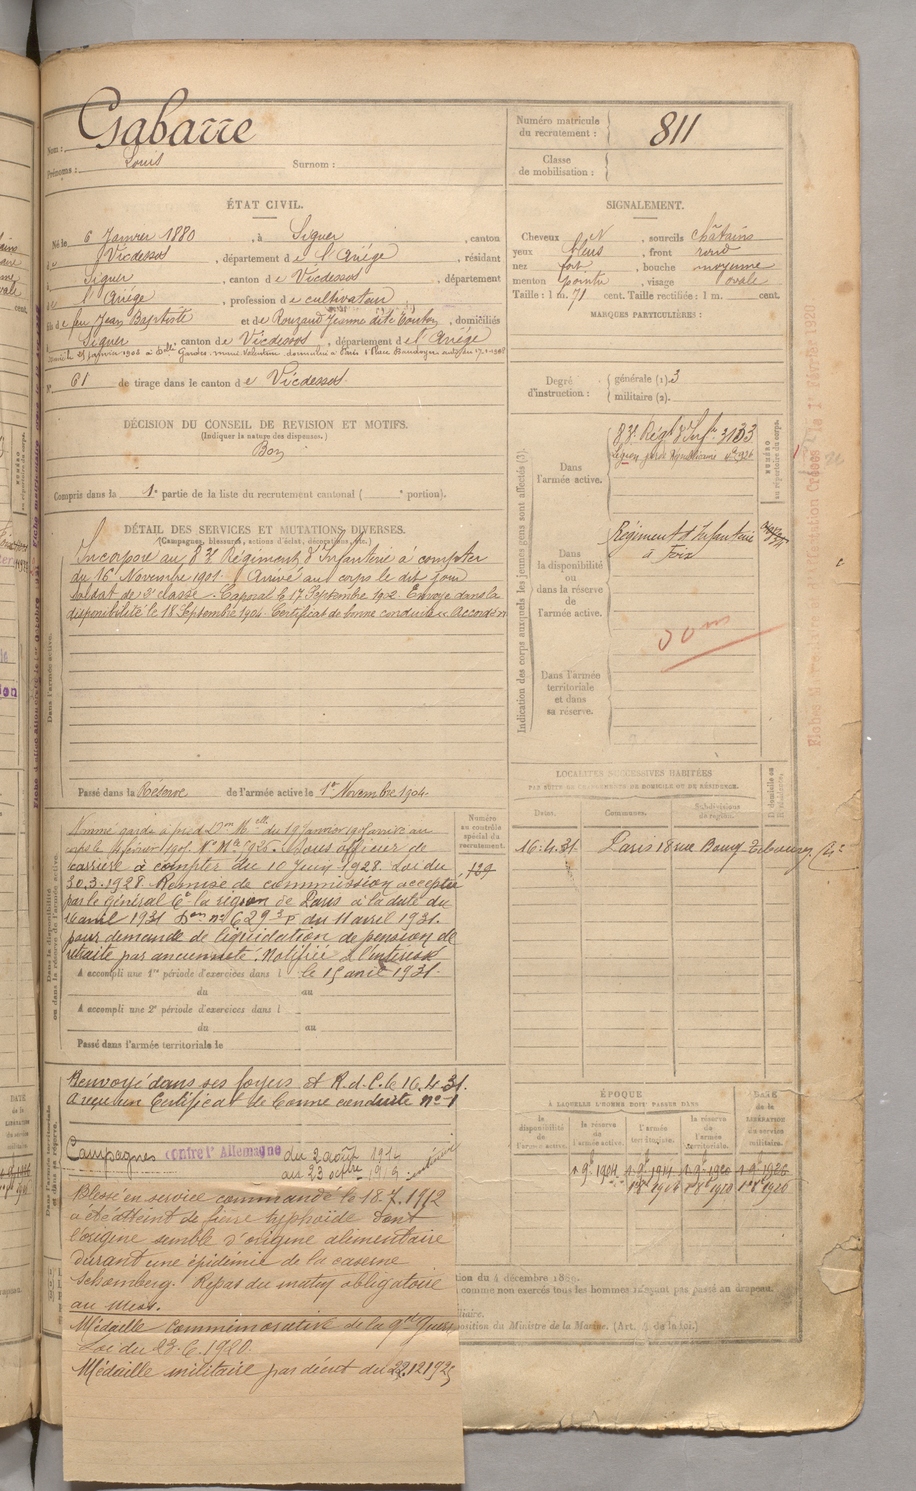 Nom : Gabarre
Prénoms : Louis Surnom :
Numéro matricule du recrutement : 811
Classe de mobilisation :
ÉTAT CIVIL.
Né le 6 Janvier 1880, à Siguer, canton
de Vicdessos, département de l'Ariége, résidant
à Siguer, canton de Vicdessos, département
de l'Ariége, profession de cultivateur
fils de feu Jean Baptiste et de Rouzaud Jeanne dite, domiciliés
à Siguer, canton de Vicdessos, département de l'Ariége
Marié le 25 janvier 1908 à Delle domiciliée à Paris Place Baudoyer
N° 61 de tirage dans le canton de Vicdessos
DÉCISION DU CONSEIL DE REVISION ET MOTIFS.
(Indiquer la nature des dispenses.)
Bon
Compris dans la 1e partie de la liste du recrutement cantonal ( e portion).
DÉTAIL DES SERVICES ET MUTATIONS DIVERSES.
(Campagnes, blessures, actions d'éclat, décorations, etc.)
Dans l'armée active.
Incorporé au 83e Régiment d'Infanterie à compter
du 16 Novembre 1901. Arrivé au corps le dit jour
soldat de 2e classe. Caporal le 17 Septembre 1902. Envoyé dans la
disponibilité le 18 Septembre 1904. Certificat de bonne conduite Accordé
Passé dans la Réserve de l'armée active le 1er Novembre 1904
Numéro au contrôle spécial du recrutement.
129
Nommé garde à pied Don Melle du 19 Janvier arrivé au
carrière à compter du 10 Juin 1928. Loi du
30.3.1928. Remise de commission acceptée
par le général Ct la région de Paris à la date du
16 avril 1931 Don n° 629 3 P du 11 avril 1931.
pour demande de liquidation de pension de
retraite par ancienneté. Notifiée à l'intéressé
A accompli une 1re période d'exercices dans l le 15 avril 1931.
du au
A accompli une 2e période d'exercices dans l
du au
Passé dans l'armée territoriale le
Renvoyé dans ses foyers et R.d.C. le 16.4.31.
a reçu un Certificat de bonne conduite n° 1
Campagnes contre l'Allemagne du 2 août 1914
au 23 octbre 1919
Blessé en service commandé le 18.7.1912
a été atteint de fièvre typhoïde dont
l'origine semble d'origine alimentaire
durant une épidémie de la caserne
Schomberg. Repas du matin obligatoire
au mess.
Médaille commémorative de la gde Guerre
Loi du 23.6.1920
Médaille militaire par décret du 22.12.1925
SIGNALEMENT.
Cheveux, sourcils châtains
yeux bleus, front rond
nez fort, bouche moyenne
menton pointu, visage ovale
Taille : 1 m. 71 cent. Taille rectifiée : 1 m. cent.
MARQUES PARTICULIÈRES :
Degré d'instruction : générale (1). 3
militaire (2).
Indication des corps auxquels les jeunes gens sont affectés (3).
Dans l'armée active.
83e Régt d'Infie 3103
Légion garde Républicaine
NUMÉRO au répertoire du corps.
Dans la disponibilité ou dans la réserve de l'armée active.
Régiment d'Infanterie
à Foix
Dans l'armée territoriale et dans sa réserve.
LOCALITÉS SUCCESSIVES HABITÉES
PAR SUITE DE CHANGEMENTS DE DOMICILE OU DE RÉSIDENCE.
Dates. Communes. Subdivisions de région. D domicile ou R résidence.
16.4.31 Paris 18 rue Bourg-Tibourg (4e
ÉPOQUE
À LAQUELLE L'HOMME DOIT PASSER DANS
la disponibilité de l'armée active. la réserve de l'armée active. l'armée territoriale. la réserve de l'armée territoriale. DATE de la LIBÉRATION du service militaire.
1 9bre 1904 1 9bre 1914 1 9bre 1920 1 9bre 1926
tion du 4 décembre 1889.
comme non exercés tous les hommes n'ayant pas passé au drapeau.
iliaire.
position du Ministre de la Marine. (Art. 4 de la loi.)